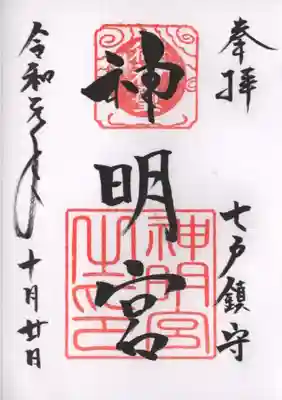 奉拝
七戸鎮守
神明宮
神明宮之印
令和元年
十月廿日